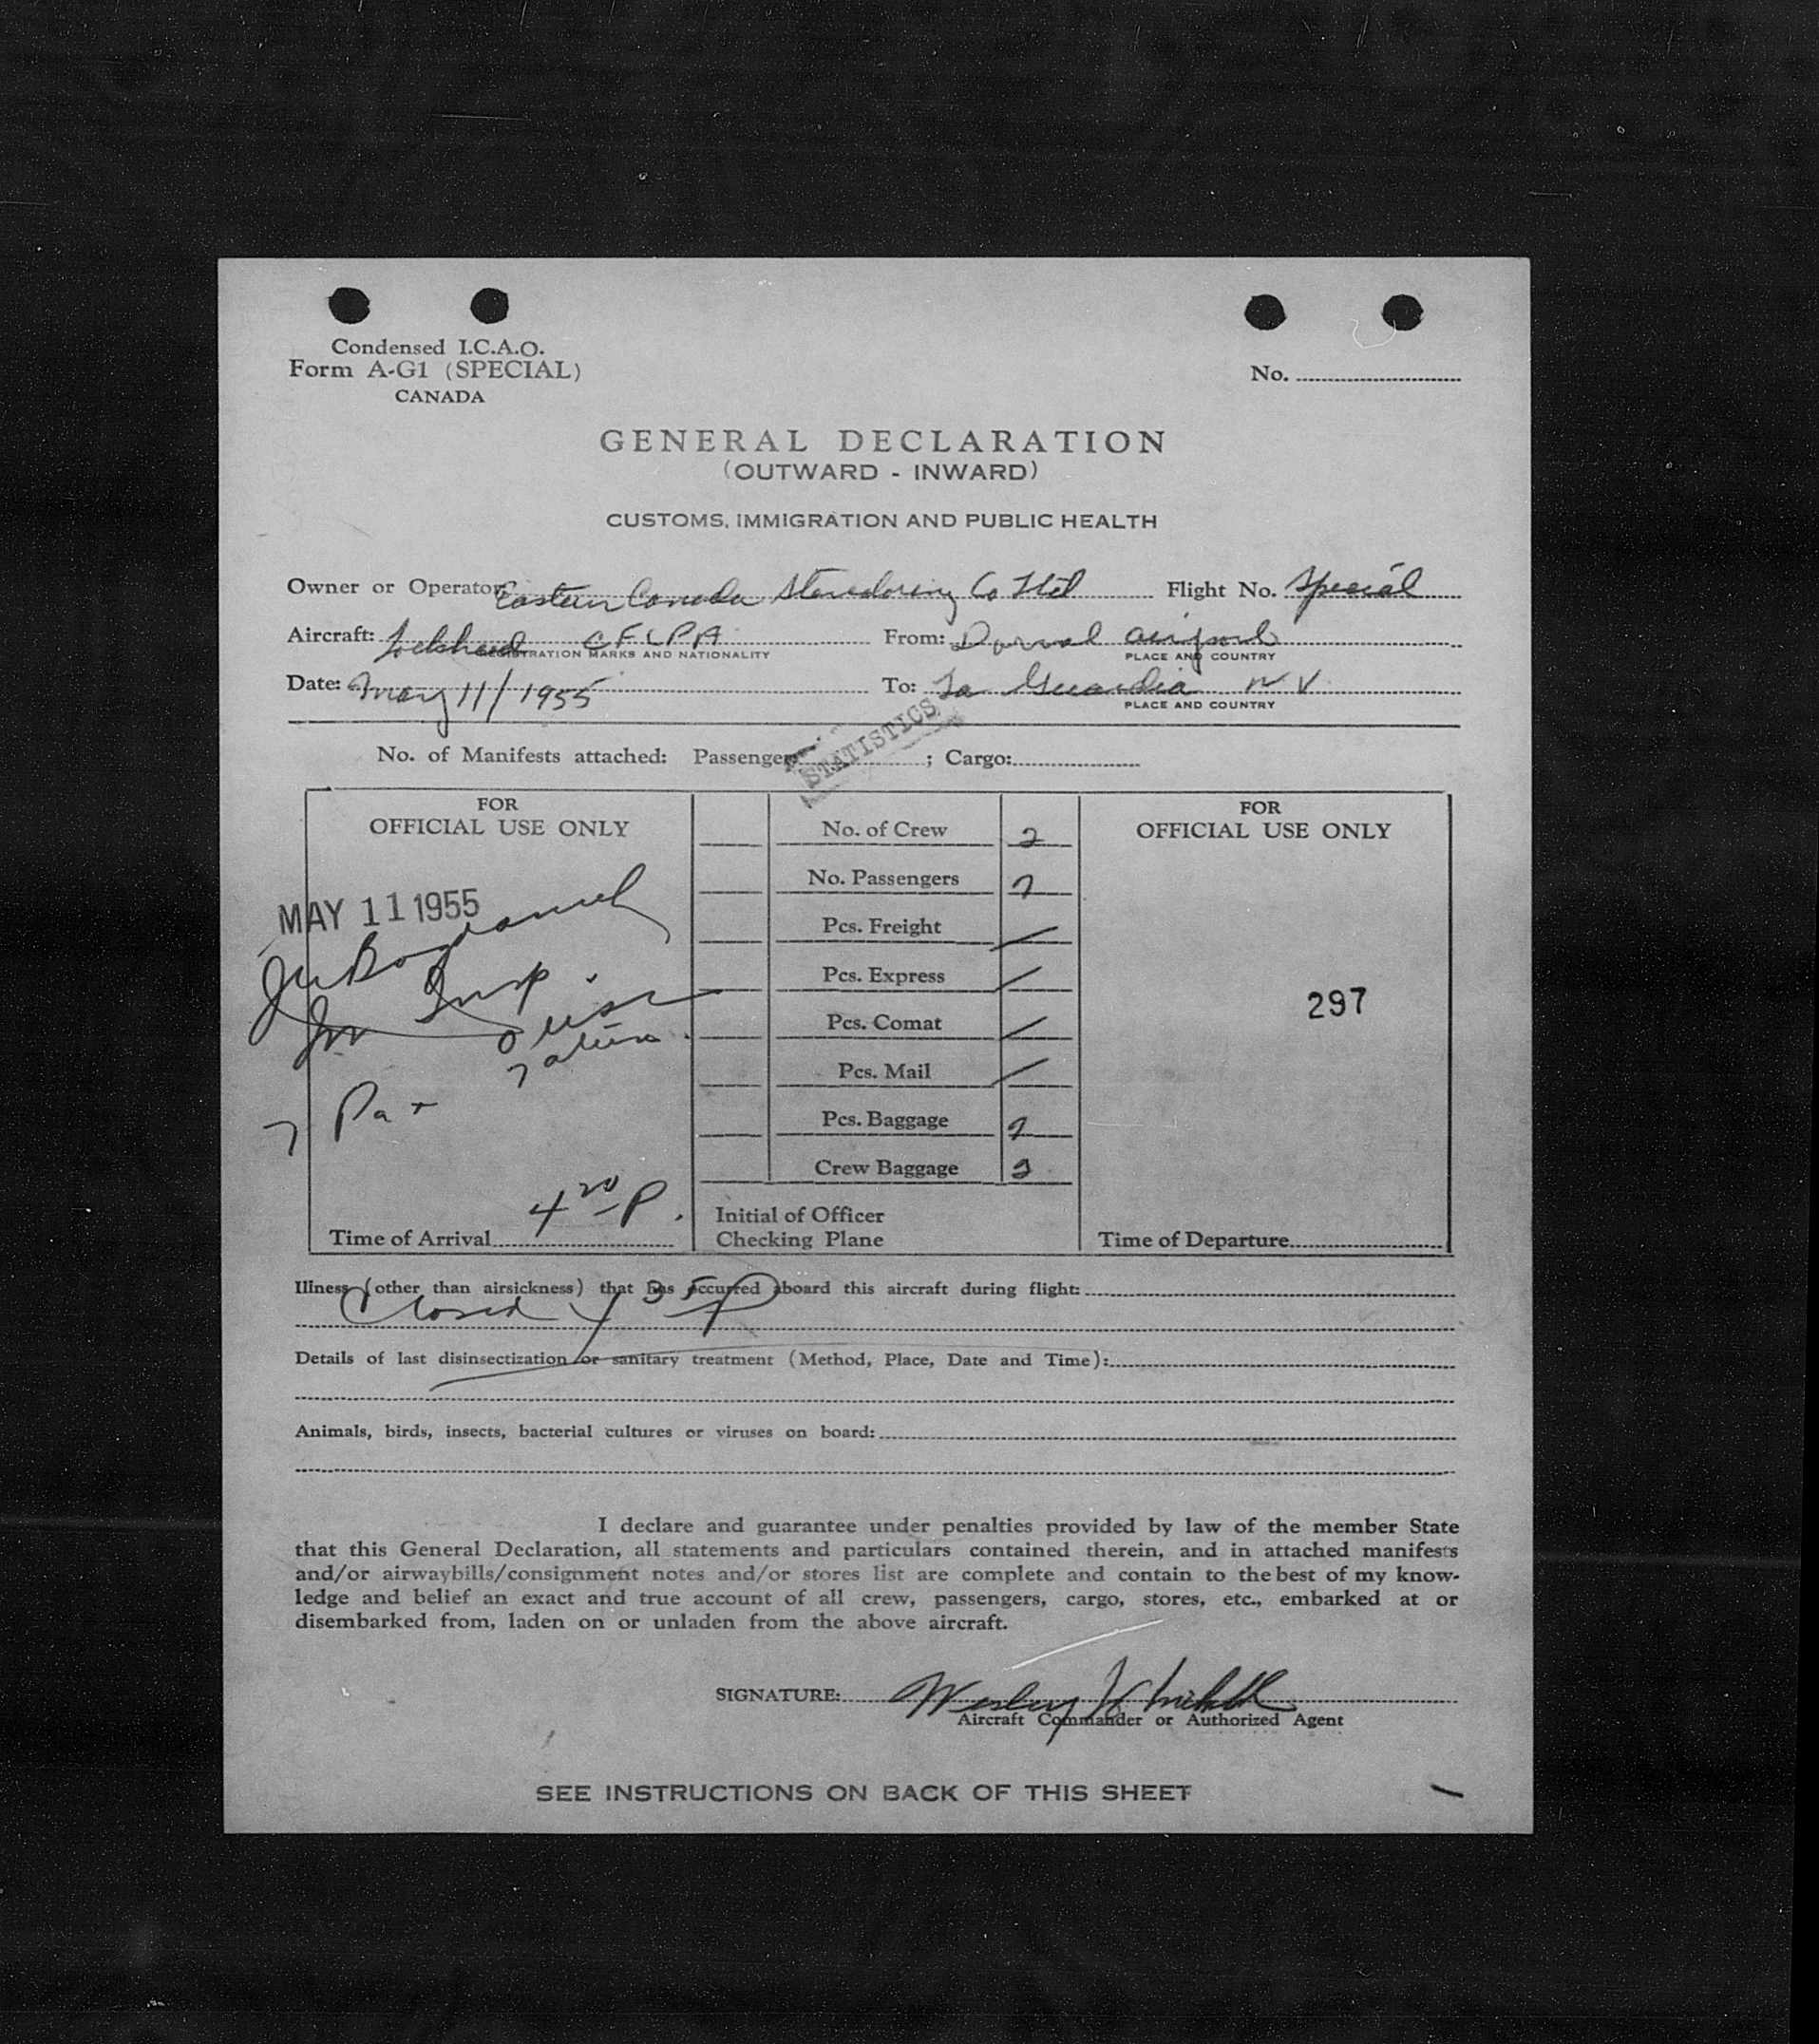 Condensed I.C.A.O.
Form A-G1 (SPECIAL)
CANADA
No.
GENERAL DECLARATION
(OUTWARD - INWARD)
CUSTOMS, IMMIGRATION AND PUBLIC HEALTH
Owner or Operator: Eastern Canada Stevedoring Co Ltd Flight No. Special
Aircraft: Lockheed CFLPA From: Dorval airport
REGISTRATION MARKS AND NATIONALITY PLACE AND COUNTRY
Date: May 11/1955 To: La Guardia N Y
PLACE AND COUNTRY
STATISTICS
No. of Manifests attached: Passenger: ; Cargo:
FOR
OFFICIAL USE ONLY
MAY 11 1955
Insp.
7 Pax
4 20 P.
Time of Arrival
No. of Crew 2
No. Passengers 7
Pcs. Freight /
Pcs. Express /
Pcs. Comat /
Pcs. Mail /
Pcs. Baggage 7
Crew Baggage 2
Initial of Officer
Checking Plane
FOR
OFFICIAL USE ONLY
297
Time of Departure
Illness (other than airsickness) that has occurred aboard this aircraft during flight:
Closed
Details of last disinsectization or sanitary treatment (Method, Place, Date and Time):
Animals, birds, insects, bacterial cultures or viruses on board:
I declare and guarantee under penalties provided by law of the member State
that this General Declaration, all statements and particulars contained therein, and in attached manifests
and/or airwaybills/consignment notes and/or stores list are complete and contain to the best of my know-
ledge and belief an exact and true account of all crew, passengers, cargo, stores, etc., embarked at or
disembarked from, laden on or unladen from the above aircraft.
SIGNATURE: Wesley
Aircraft Commander or Authorized Agent
SEE INSTRUCTIONS ON BACK OF THIS SHEET